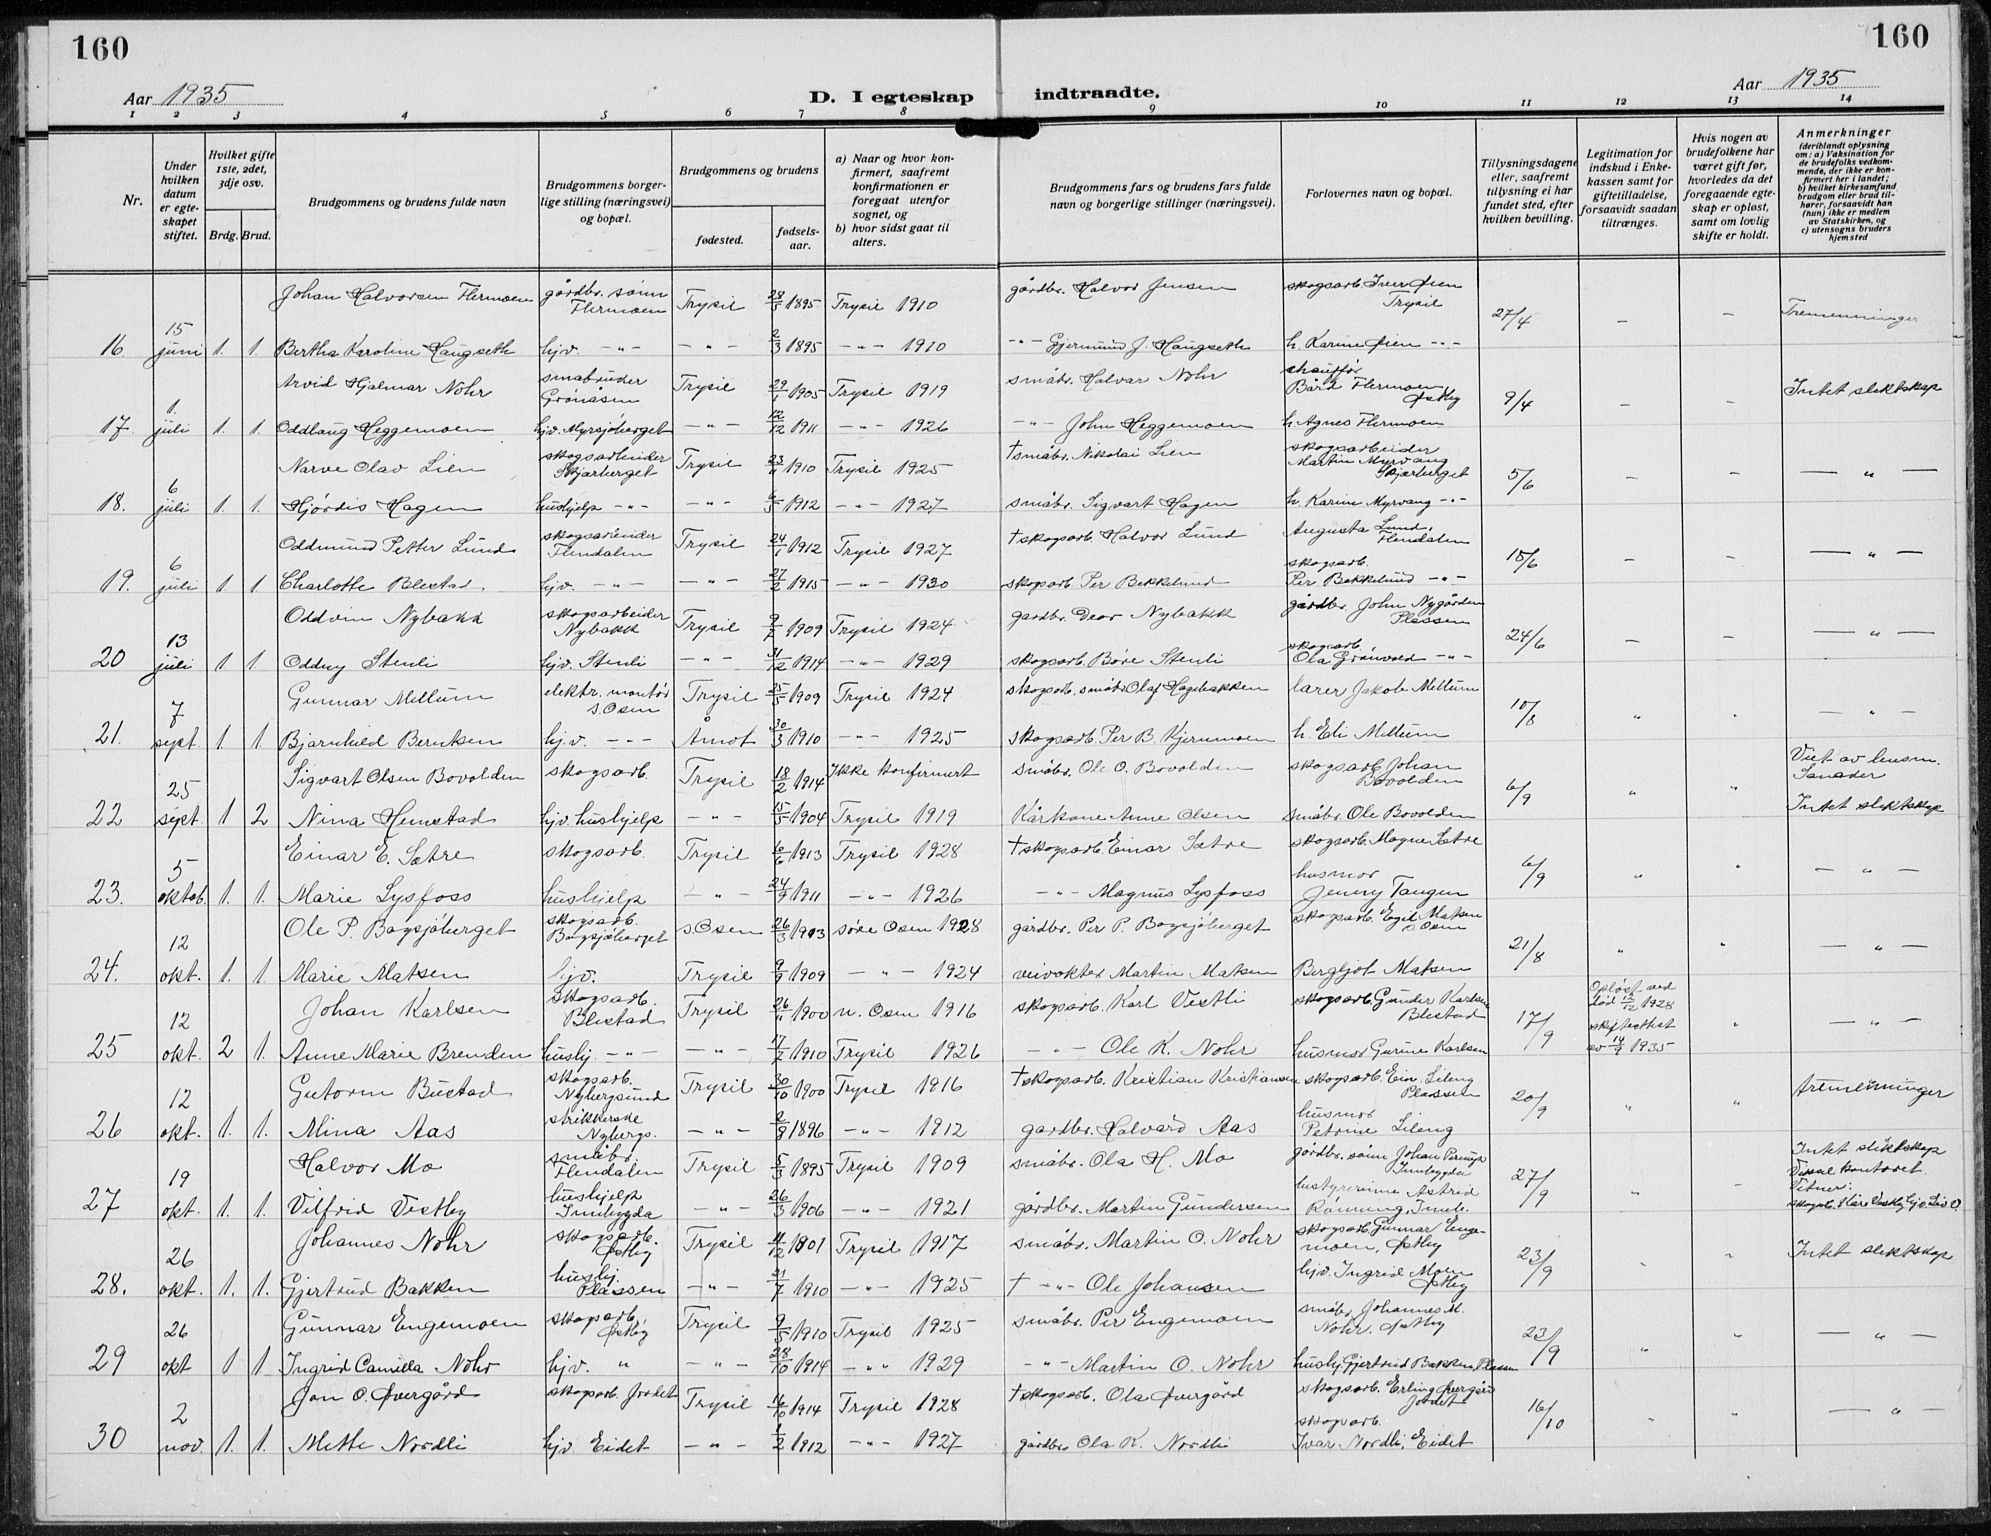 160
160
Aar 1935
D. I egteskap indtraadte.
Aar 1935
1 2 3 4 5 6 7 8 9 10 11 12 13 14
Nr.
Under hvilken datum er egteskapet stiftet.
Hvilket gifte 1ste, 2det, 3dje osv.
Brdg. Brud.
Brudgommens og brudens fulde navn
Brudgommens borgerlige stilling (næringsvei) og bopæl.
Brudgommens og brudens
fødested.
fødselsaar.
a) Naar og hvor konfirmert, saafremt konfirmationen er foregaat utenfor sognet, og
b) hvor sidst gaat til alters.
Brudgommens fars og brudens fars fulde navn og borgerlige stillinger (næringsvei).
Forlovernes navn og bopæl.
Tillysningsdagene eller, saafremt tillysning ei har fundet sted, efter hvilken bevilling.
Legitimation for indskud i Enkekassen samt for giftetilladelse, forsaavidt saadan tiltrænges.
Hvis nogen av brudefolkene har været gift før, hvorledes da det foregaaende egteskap er opløst, samt om lovlig skifte er holdt.
Anmerkninger (deriblandt oplysning om: a) Vaksination for de brudefolks vedkommende, der ikke er konfirmert her i landet; b) hvilket kirkesamfund brudgom eller brud tilhører, forsaavidt han (hun) ikke er medlem av Statskirken, og c) utensogns bruders hjemsted
Johan Halvorsen Flermoen gårdbr. sønn Flermoen Trysil 28/5 1895 Trysil 1910 gårdbr. Halvor Jensen skogsarb. Iver Øien Trysil 27/4 – – Tremenninger
16. 15 juni 1. 1. Bertha Karoline Haugseth hjv. -"- -"- 2/3 1895 -"- 1910 -"- Gjermund J. Haugseth h. Karine Øien -"-
Arvid Hjalmar Nohr småbruker Grønåsen Trysil 29/1 1905 Trysil 1919 småbr. Halvar Nohr chauffør Bård Flermoen, Østby 9/4 – – Intet slektskap
17. 1. juli 1. 1. Oddlaug Heggemoen hjv. Myrsjøberget -"- 12/12 1911 -"- 1926 -"- John Heggemoen h. Agnes Flermoen
Narve Olav Lien skogsarbeider Skjærberget Trysil 23/11 1910 Trysil 1925 † småbr. Nikolai Lien skogsarbeider Martin Myrvang Skjærberget 5/6 – – — " —
18. 6 juli 1. 1. Hjørdis Hagen hushjelp -"- -"- 1912 -"- 1927 småbr. Sigvart Hagen h. Karine Myrvang -"-
Oddmund Petter Lund skogsarbeider Flendalen Trysil 24/1 1912 Trysil 1927 † skogsarb. Halvor Lund Augusta Lund, Flendalen 15/6 – – — " —
19. 6 juli 1 1 Charlotte Blestad hjv. -"- -"- 27/2 1915 -"- 1930 skogarb. Per Bekkelund skogsarb. Per Bekkelund -"-
Oddvin Nybakk skogsarbeider Nybakk Trysil 9/7 1909 Trysil 1924 gardbr. Nybakk gårdbr. John Nygården Plassen 24/6 – – — " —
20 13 juli 1 1. Oddny Stenli hjv. Stenli -"- 31/12 1914 -"- 1929 skogsarb. Børe Stenli skogsarb. Ola Grønvold -"-
Gunnar Mellum elektr. montør s. Osen Trysil 25/5 1909 Trysil 1924 skogarb. småbr. Olaf Hagebakken lærer Jakob Mellum 10/8 " " — " —
21. 7 sept. 1. 1. Bjarnhild Berntsen hj.v. -"- Åmot 30/3 1910 -"- 1925 skogsarb. Per B. Kjernmoen h. Eli Mellum
Sigvart Olsen Bovolden skogsarb. Trysil 18/2 1914 Ikke konfirmert småbr. Ole O. Bovolden skogsarb. Johan Bovolden 6/9 " " Viet av lensm.
22 25 sept. 1 2 Nina Hemstad hjv. hushjelp -"- 15/5 1904 Trysil 1919 Kårkone Anne Olsen småbr. Ole Bovolden Intet slektskap
Einar E. Sætre skogsarb. Trysil 6/6 1913 Trysil 1928 † skogsarb. Einar Sætre skogsarb. Magne Sætre 6/9 " " — " —
23. 5 oktob. 1. 1. Marie Lysfoss hushjelp -"- 24/9 1911 -"- 1926 -"- Magnus Lysfoss husmor Jenny Tangen
Ole P. Bagsjøberget skogsarb. Bagsjøberget s. Osen 26/3 1913 søre Osen 1928 gårdbr. Per P. Bagsjøberget skogsarb. Egil Matsen s. Osen 21/8 " " — " —
24. 12 okt. 1. 1. Marie Matsen hjv. Trysil 9/9 1909 — " — 1924 veivokter Martin Matsen Bergljot Matsen
Johan Karlsen skogsarb. Blestad Trysil 26/11 1900 n. Osen 1916 skogsarb. Karl Vestli skogsarb. Gunder Karlsen Blestad 17/9 Opløst ved død 12/12 1928 skifteattest av 14/9 1935 " — " —
25 12 okt. 2 1. Anne Marie Brenden hushj. -"- -"- 17/2 1910 Trysil 1926 -"- Ole K. Nohr husmor Gurine Karlsen
Gutorm Bustad skogsarb. Nybergsund Trysil 30/10 1900 Trysil 1916 † skogsarb. Kristian Kristiansen skogsarb. Ein. Lileng Plassen 20/9 " " Tremenninger
26 12 okt. 1. 1. Mina Aas strikkerske Nybergs. -"- 2/8 1896 -"- 1912 gardbr. Halvard Aas husmor Petrine Lileng
Halvor Mo småbr. Flendalen Trysil 5/3 1895 Trysil 1909 småbr. Ola H. Mo gårdbr. sønn Johan Innbygda 27/9 " - Intet slektskap
27 19 okt. 1. 1. Vilfrid Vestby hushjelp Innbygda -"- 26/3 1906 -"- 1921 gårdbr. Martin Gundersen bestyrerinne Astrid Rønning, Innb. Vitner:
Johannes Nohr skogsarb. Østby Trysil 4/12 1901 Trysil 1917 småbr. Martin O. Nohr skogsarb. Gunnar Engemoen, Østby 23/9 " " Intet slektskap
28. 26 okt. 1. 1. Gjertrud Bakken hushj. Plassen -"- 21/7 1910 -"- 1925 † -"- Ole Johansen hjv. Ingrid Moen Østby
Gunnar Engemoen skogsarb. Østby Trysil 9/5 1910 Trysil 1925 småbr. Per Engemoen småbr. Johannes M. Nohr, Østby 23/9 " " — " —
29 26 okt 1 1. Ingrid Camilla Nohr hjv. " -"- 28/10 1914 -"- 1929 -"- Martin O. Nohr hushj. Gjertrud Bakken, Plassen
Jon O. Øvergård skogsarb. Jordet Trysil 16/10 1914 Trysil 1928 † skogsarb. Ola Øvergård skogsarb. Erling Øvergård Jordet 16/10 " " — " —
30 2 nov. 1. 1. Mette Nordli hjv. Eidet -"- 1/2 1912 -"- 1927 gårdbr. Ola K. Nordli skogsarb. Ivar Nordli, Eidet